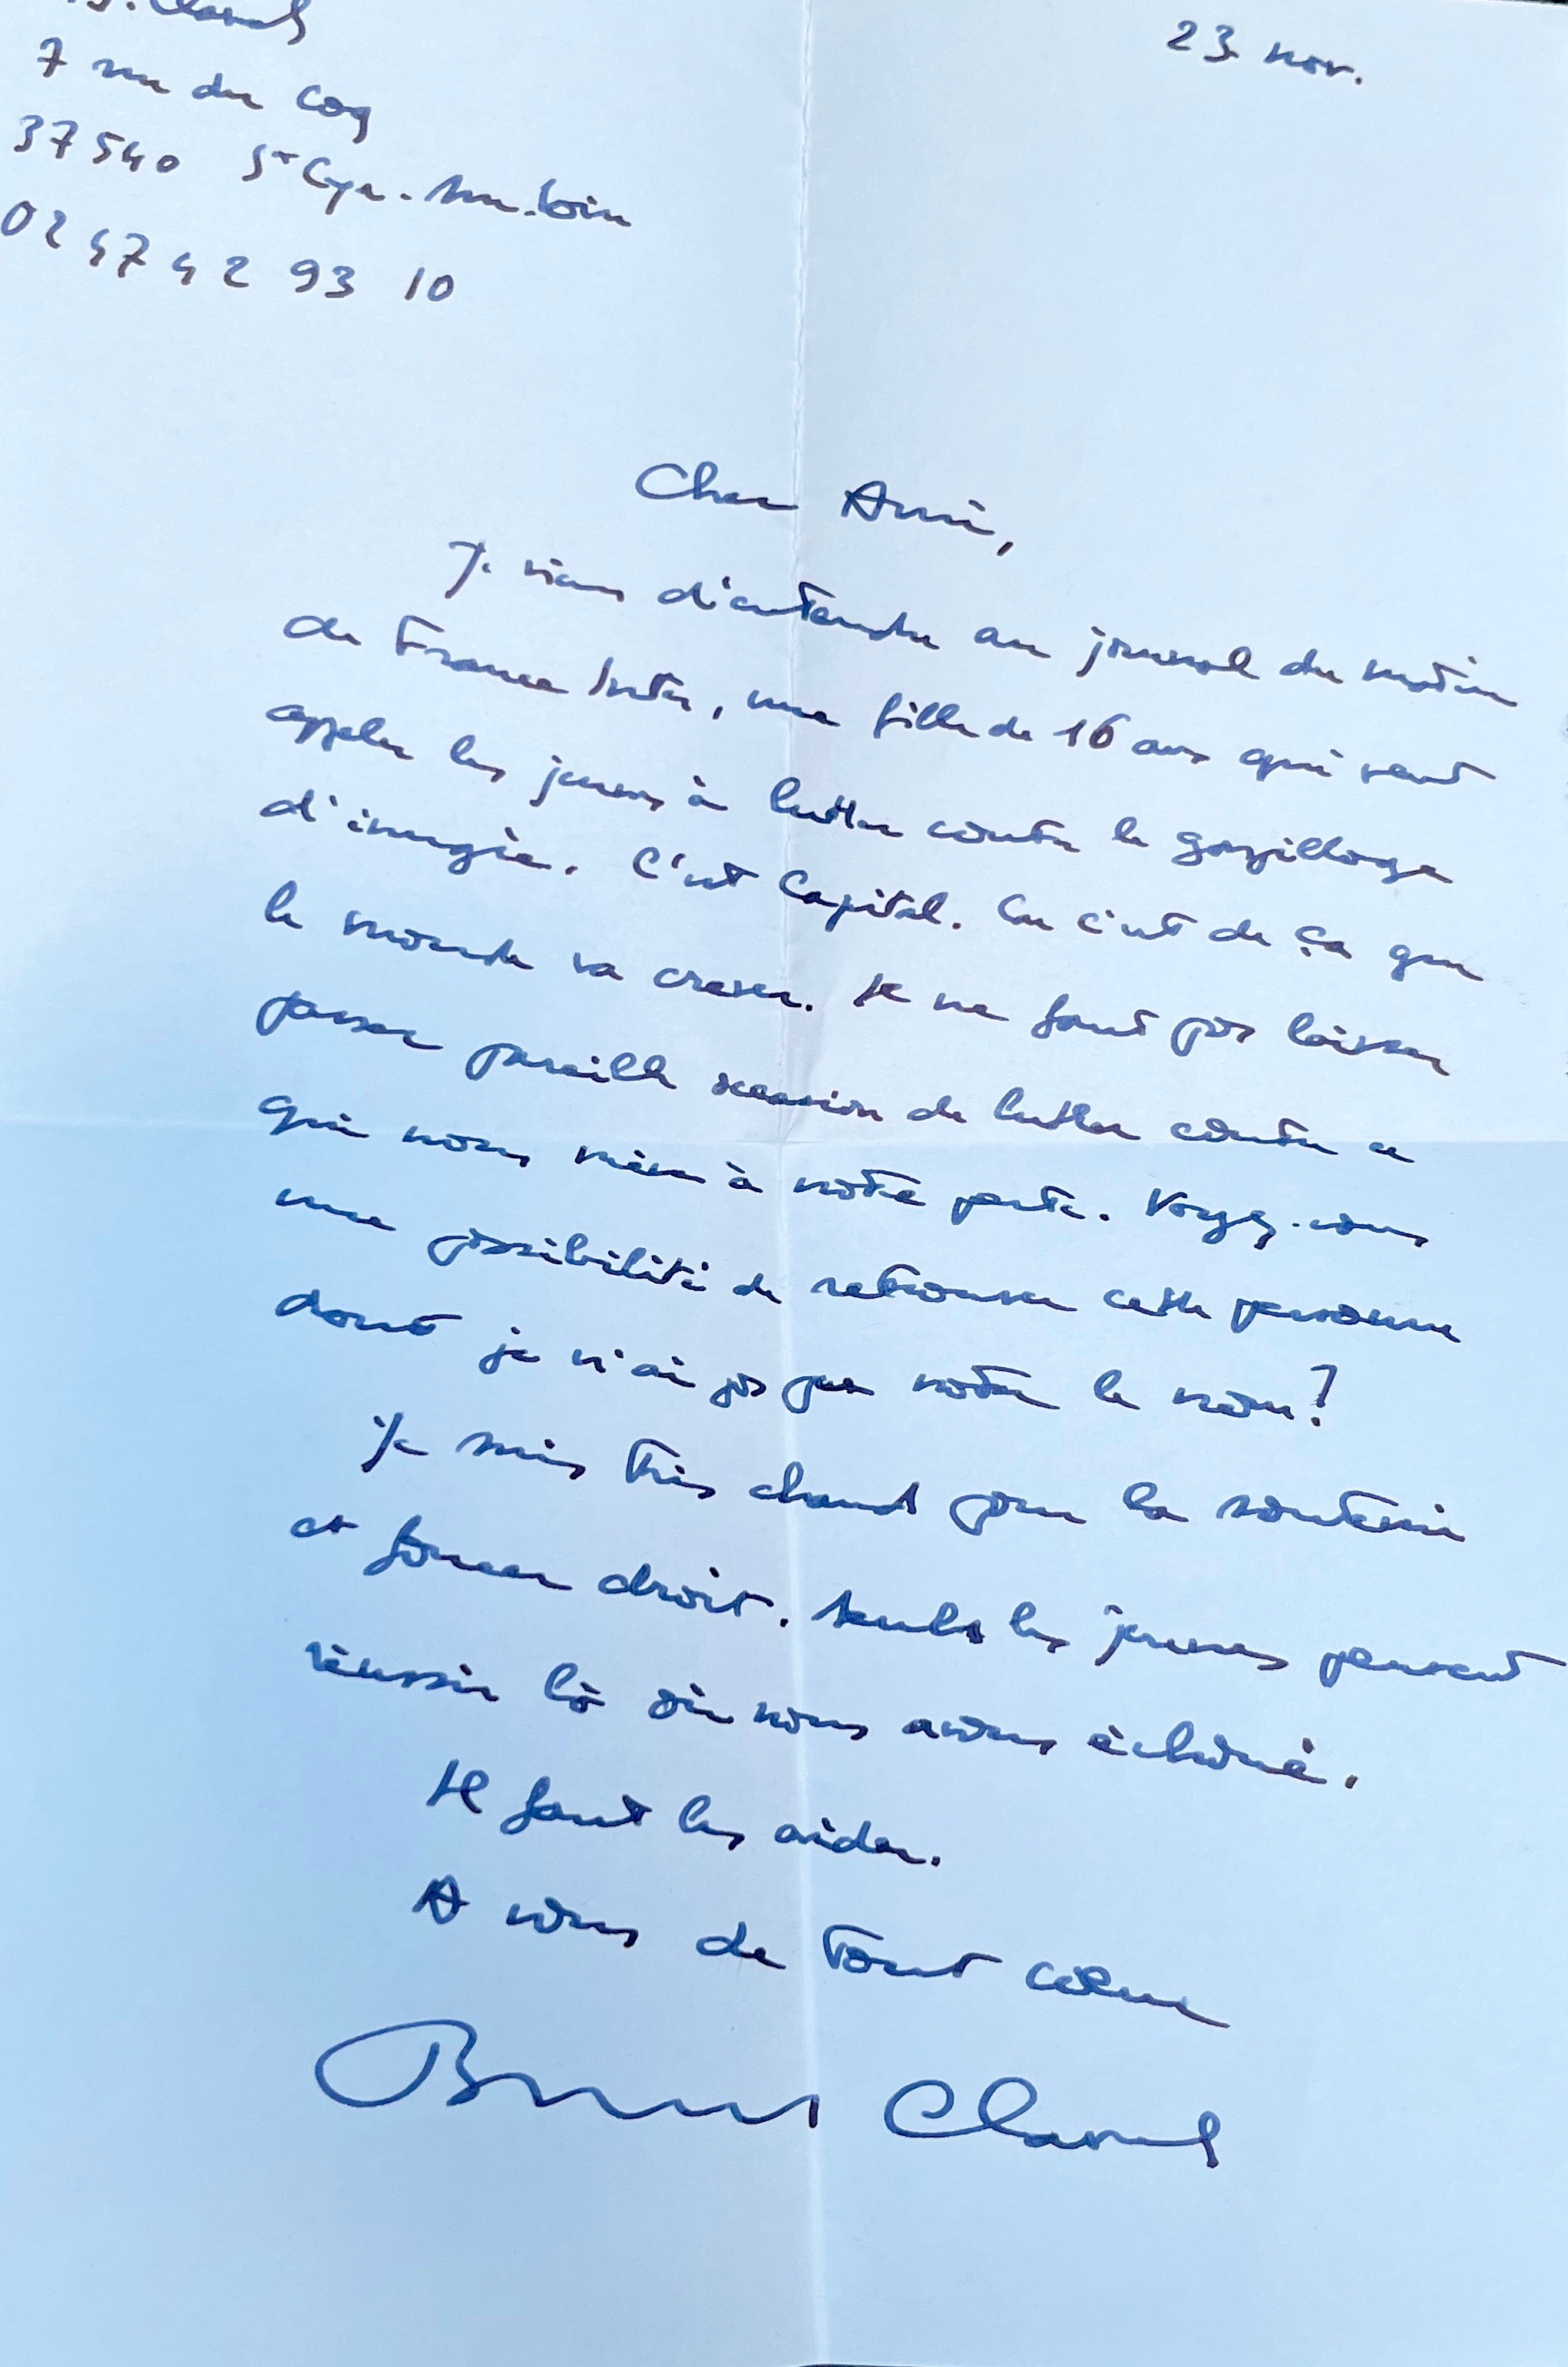 B. Clavel
7 rue du Coq
37540 St Cyr-sur-Loire
02 47 42 93 10
23 nov.
Cher Ami,
Je viens d'entendre au journal du matin
de France Inter, une fille de 16 ans qui veut
appeler les jeunes à lutter contre le gaspillage
d'énergie. C'est Capital. Car c'est de ça que
le monde va crever. Il ne faut pas laisser
passer pareille occasion de lutter contre ce
qui nous mène à notre perte. Voyez-vous
une possibilité de retrouver cette personne
dont je n'ai pas pu noter le nom ?
Je suis très chaud pour la soutenir
et foncer droit. Seuls les jeunes peuvent
réussir là où nous avons échoué.
Il faut les aider.
A vous de tout cœur
Bernard Clavel